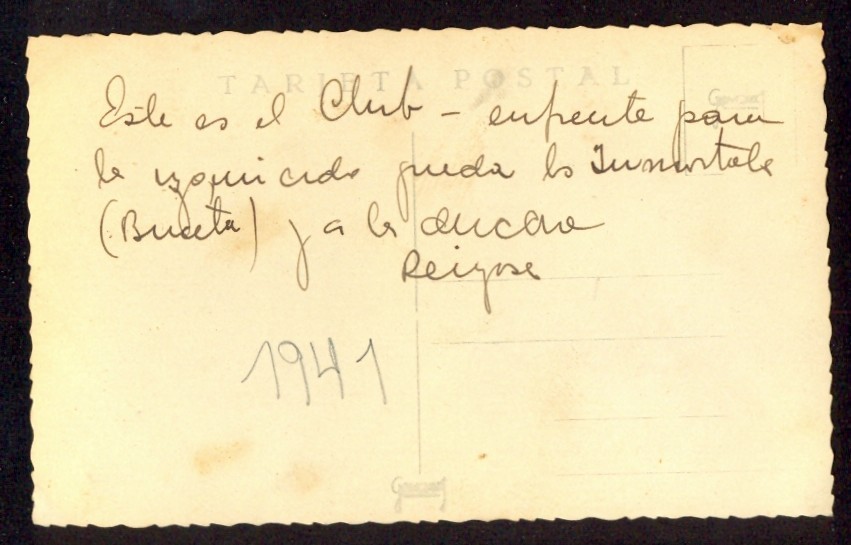 TARJETA POSTAL
Este es el Club - enfrente para
la izquierda queda la Inmortale
(Buceta) y a la derecha
Reigosa
1941